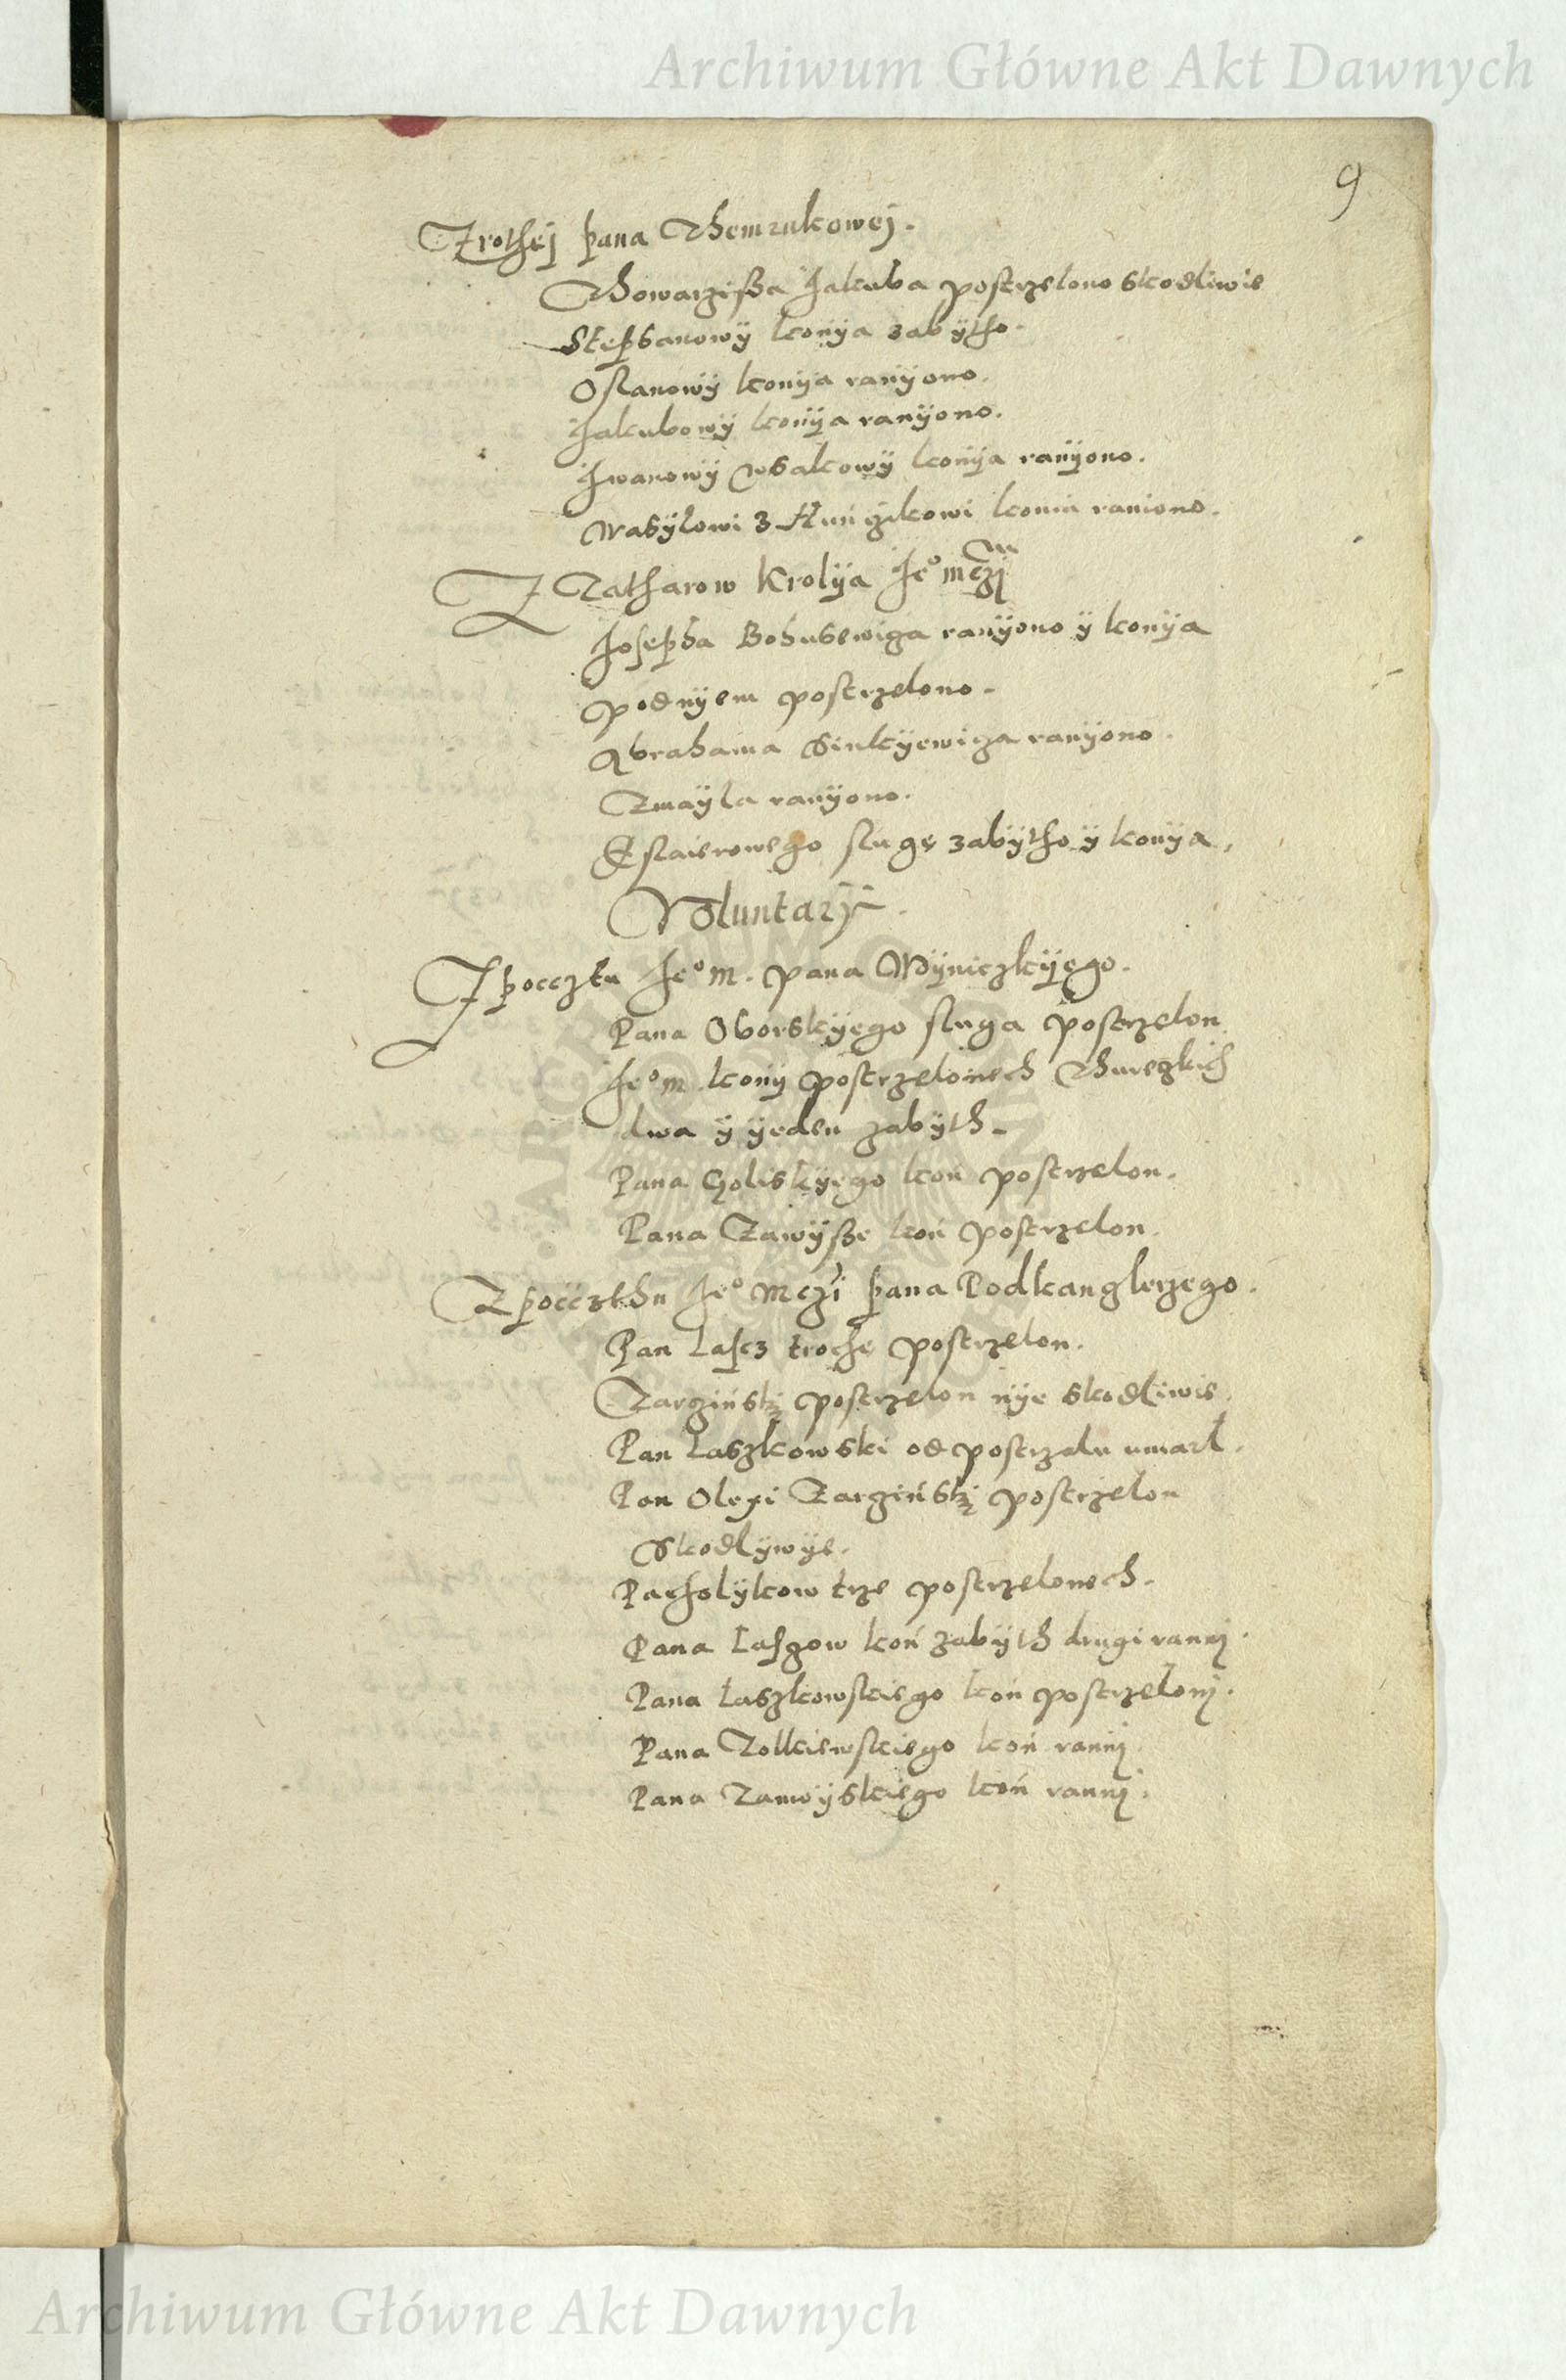 Archiwum Główne Akt Dawnych
9
Z rothej pana Themrukowej.
Thowarzissa Jakuba postrzelono skodliwie
Stephanowÿ konÿa zabÿtho.
Oslanowÿ konÿa ranÿono.
Jakubowÿ konÿa ranÿono.
Jwanowÿ konÿa ranÿono.
Wasÿlowi z koniu raniono.
Z Tatharow Krolÿa Jeº mczj
Josepha Bohusewiza ranÿono ÿ konÿa
pod nÿem postrzelono.
Abrahama Sinkÿewiza ranÿono.
Zmaÿla ranÿono.
slugę zabÿtho ÿ konÿa,
Voluntarÿ.
Z pocztu Jeº m. pana Mÿniczkÿego.
Pana Oborskÿego sluga postrzelon
Jeº m konÿ postrzelonech Thureczkich
dwa ÿ ÿeden zabÿth.
Pana Goliskÿego koń postrzelon.
Pana Zawÿsze koń postrzelon.
Z pocczthu Jeº mczi pana Podkanglerzego.
Pan Lascz trochę postrzelon.
Zarziński postrzelon nÿe skodliwie.
Pan Laszkowski od postrzalu umarl.
Pan Olexi Zarziński postrzelon
Skodlÿwÿe.
Pacholÿkow trze postrzelonech.
Pana Laszow koń zabÿth drugi rannj.
Pana Laszkowskiego koń postrzelonj.
Pana Zolkiewskiego koń rannj.
Pana Zamoÿskiego koń rannj.
Archiwum Główne Akt Dawnych